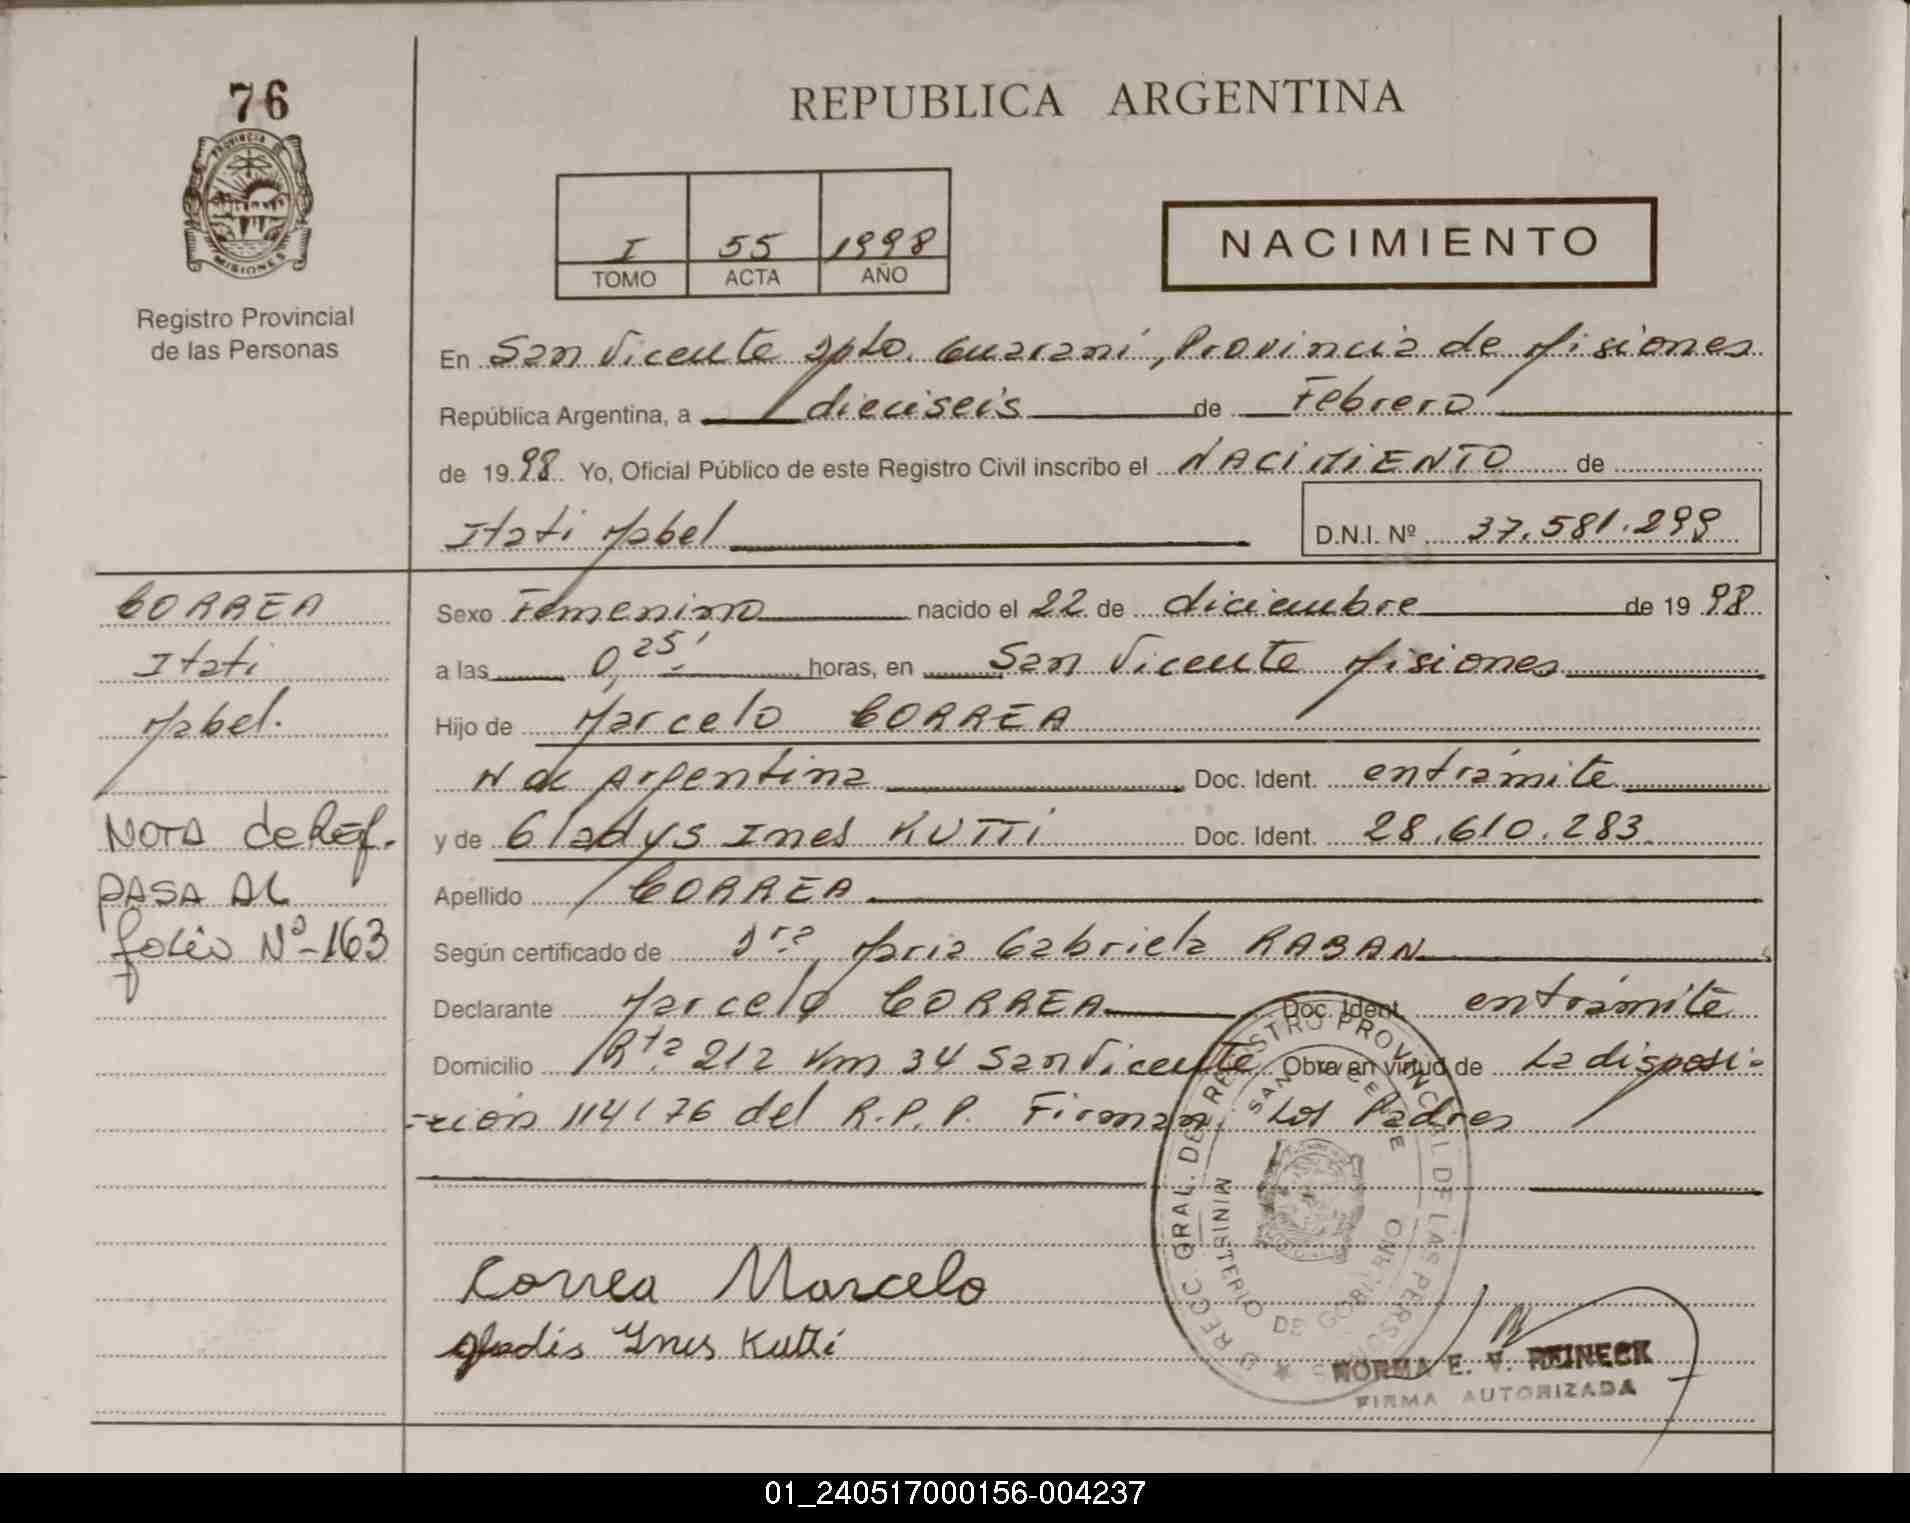 76
PROVINCIA DE
MISIONES
Registro Provincial
de las Personas
REPUBLICA ARGENTINA
I 55 1998
TOMO ACTA AÑO
NACIMIENTO
En San Vicente Dpto. Guaraní, Provincia de Misiones
República Argentina, a dieciseis de Febrero
de 1998 Yo, Oficial Público de este Registro Civil inscribo el NACIMIENTO de
Itati Mabel D.N.I. Nº 37.581.299
CORREA
Itati
Mabel.
NOTA de Ref.
PASA AL
folio Nº-163
Sexo Femenino nacido el 22 de diciembre de 1998
a las 0,25' horas, en San Vicente Misiones
Hijo de Marcelo CORREA
N de Argentina Doc. Ident. entrámite
y de Gladys Ines KUTTI Doc. Ident. 28.610.283
Apellido CORREA
Según certificado de Dra Maria Gabriela RABAN
Declarante Marcelo CORREA Doc. Ident. entrámite
Domicilio Rta. 212 Km 34 San Vicente Obra en virtud de La disposi-
-ción 114/76 del R.P.P. Firman Los Padres
D RECC. GRAL. DE REGISTRO PROVINCIAL DE LAS PERSONAS
SAN VICENTE
MINISTERIO DE GOBIERNO
Correa Marcelo
Gladis Ynes Kutti
NORMA E. V. REINECK
FIRMA AUTORIZADA
01_240517000156-004237